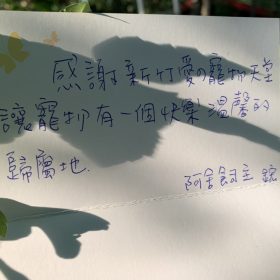 感謝新竹愛の寵物天堂
讓寵物有一個快樂溫馨的
歸屬地.
阿舍飼主 銳